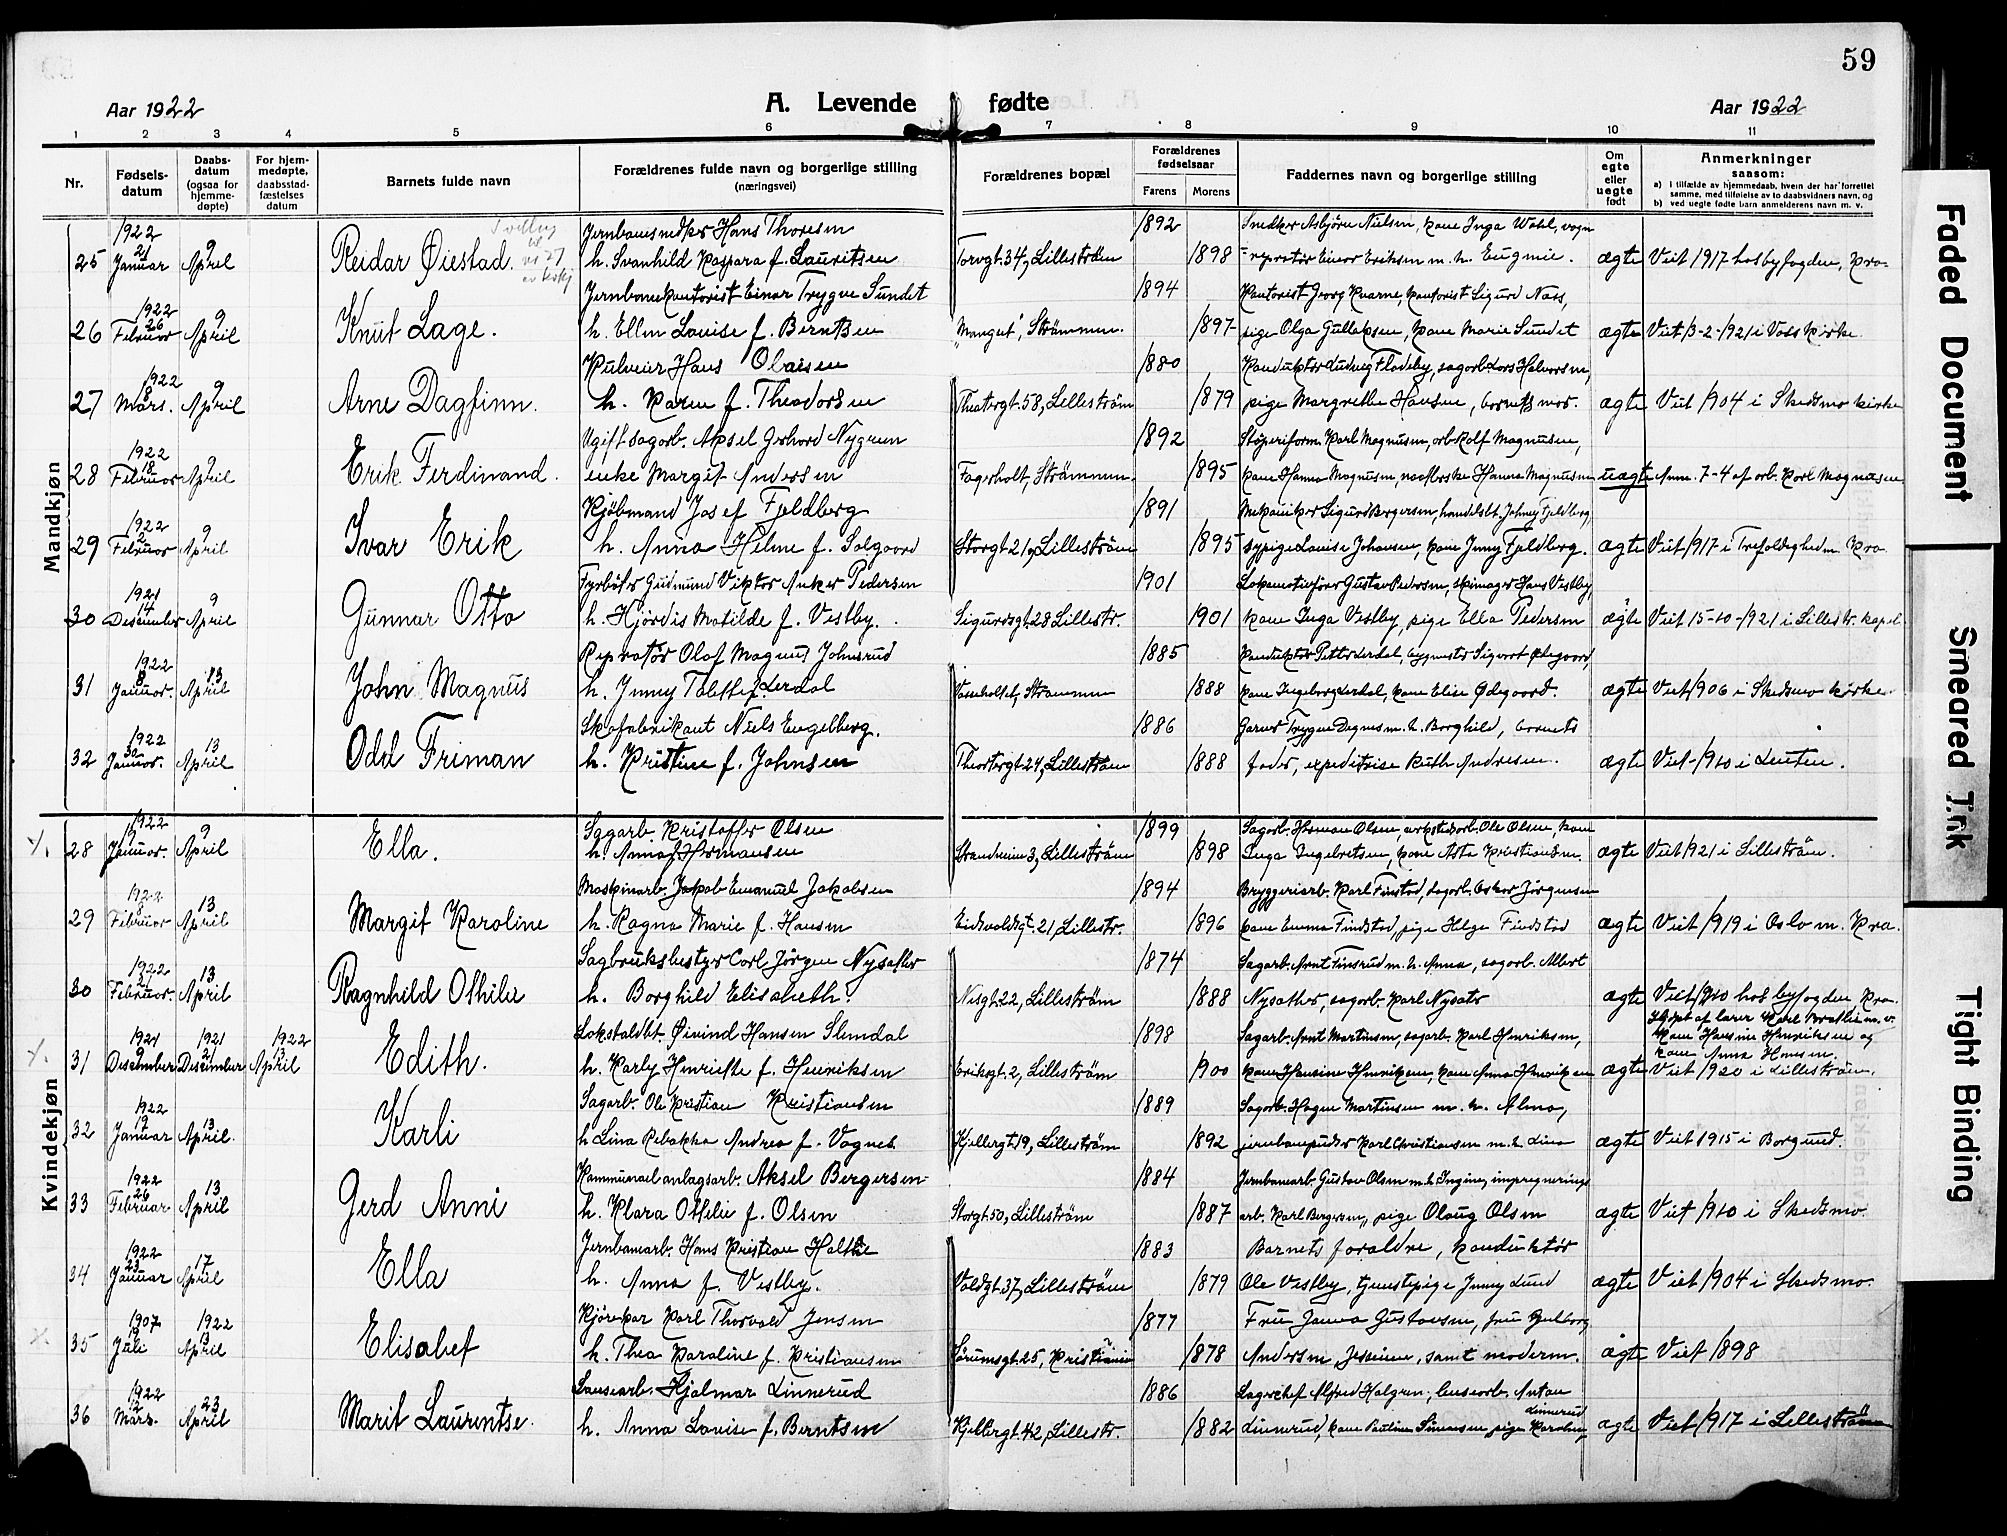 59
Aar 1922
A. Levende fødte
Aar 1922
1 2 3 4 5 6 7 8 9 10 11
Nr.
Fødsels-
datum
Daabs-
datum
(ogsaa for
hjemme-
døpte)
For hjem-
medøpte,
daabsstad-
fæstelses
datum
Barnets fulde navn
Forældrenes fulde navn og borgerlige stilling
(næringsvei)
Forældrenes bopæl
Forældrenes
fødselsaar
Farens Morens
Faddernes navn og borgerlige stilling
Om
egte
eller
uegte
født
Anmerkninger
saasom:
a) i tilfælde av hjemmedaab, hvem der har forrettet
samme, med tilføielse av to daabsvidners navn, og
b) ved uegte fødte barn anmelderens navn m. v.
Mandkjøn
1922 Jernbanesmed Hans Thoresen 1892 Snedker Asbjørn Nielsen, kone Inga Wahl, vogn
25 21 Januar 9 April Reidar Øiestad. h. Svanhild Kaspara f. Lauritsen Torvgt. 34, Lillestrøm 1898 -reparatør Einar Eriksen m. h. Eugenie. ægte Viet 1917 hos byfogden, Kra.
1922 Jernbanekontorist Einar Trygve Sundet 1894 Kontorist Georg Kvarne, kontorist Sigurd Næss,
26 26 Februar 9 April Knut Lage. h. Ellen Louise f. Berntsen Strømmen. 1897 pige Olga Gulleksen, kone Marie Sundet ægte Viet 13-2-1921 i Voss kirke.
1922 Hans Olausen 1880 Konduktør Ludvig Flodeby, sagarb. Lars Halvorsen,
27 8 Mars. 9 April Arne Dagfinn. h. Karen f. Theodorsen Theatergt. 58, Lillestrøm 1879 pige Margrethe Hansen, barnets mor. ægte Viet 1904 i Skedsmo kirke
1922 Ugift sagarb. Aksel Gerhard Nygren 1892 Støperiform. Karl Magnusen, arb. Rolf Magnusen,
28 18 Februar 9 April Erik Ferdinand. enke Margit Andersen Fagerholt, Strømmen. 1895 kone Hanna Magnusen, Hanna Magnusen uægte Anm. 7-4 af arb. Karl Magnusen
1922 Kjøbmand Josef Fjeldberg 1891 Mekaniker Sigurd Borgersen, handelsbt. Johnny Fjeldberg,
29 2 Februar 9 April Ivar Erik h. Anna Helene f. Solgaard Storgt. 21, Lillestrøm 1895 sypige Louise Johansen, kone Jenny Fjeldberg. ægte Viet 1917 i Trefoldigheden Kra
1921 Fyrbøter Gudmund Viktor Anker Pedersen 1901 Lokomotivfører Gustav Pedersen, skimager Hans Vestby,
30 14 Desember 9 April Gunnar Otto h. Hjørdis Matilde f. Vestby. Sigurdsgt. 28 Lillestr. 1901 kone Inga Vestby, pige Ella Pedersen ægte Viet 15-10-1921 i Lillestr. kapel
1922 Reparatør Olaf Magnus Johnsrud 1885 Konduktør Petter Lerdal, bygmester Sigvart Ødegaard,
31 8 Januar. 13 April John Magnus h. Jenny Tolette f. Lerdal Strømmen 1888 kone Ingeborg Lerdal, kone Elise Ødegaard. ægte Viet 1906 i Skedsmo kirke
1922 Skofabrikant Niels Engelberg. 1886 Garver Trygve m. h. Borghild, barnets
32 30 Januar. 13 April Odd Friman h. Kristine f. Johnsen Theatergt. 24, Lillestrøm 1888 fader, expeditrise Ruth Andresen. ægte Viet 1910 i Løuten.
Kvindekjøn
1922 Sagarb. Kristoffer Olsen 1899 Sagarb. Herman Olsen, verkstedarb. Ole Olsen, kone
28 Januar. 9 April Ella. h. Anna f. Hermansen Strandveien 3, Lillestrøm 1898 Inga Ingebretsen, kone Asta Kristiansen. ægte Viet 1921 i Lillestrøm.
1922 Maskinarb. Jakob Emanuel Jakobsen 1894 Bryggeriarb. Karl Finstad, sagarb. Oskar Jørgensen
29 Februar 13 April Margit Karoline h. Ragna Marie f. Hansen Eidsvoldsgt. 21, Lillestr. 1896 kone Emma Findstad, pige Helga Findstad ægte Viet 1919 i Oslo m. Kra.
1922 Sagbruksbestyrer Carl Jørgen Nysæther 1874 Sagarb. Arnt Finsrud m. h. Anna, sagarb. Albert
30 21 Februar. 13 April Ragnhild Othilie h. Borghild Elisabeth. Nesgt. 22, Lillestrøm 1888 Nysæther, sagarb. Karl Nysæter ægte Viet 1910 hos byfogden Kra.
1921 1921 1922 Lokstaldbt. Øivind Hansen Slemdal 1898 Sagarb. Arnt Martinsen, sagarb. Karl Henriksen,
Hjdøpt af lærer Karl Brathe m. v.
kone Hansine Henriksen og
kone Anna Hansen.
31 9 Desember 21 Desember 13 April Edith. h. Karly Henriette f. Henriksen Eriksgt. 2, Lillestrøm 1900 kone Hansine Henriksen, kone Anna Henriksen ægte Viet 1920 i Lillestrøm.
1922 Sagarb. Ole Kristian Kristiansen 1889 Sagarb. Hagen Martinsen m. h. Alma,
32 17 Januar 13 April. Karli h. Lina Rebekka Andrea f. Vognet Kjellergt. 19, Lillestrøm 1892 jernbanepudser Karl Christiansen m. h. Lina ægte Viet 1915 i Borgund.
1922 Kommunal anlægsarb. Aksel Bergersen 1884 Jernbanearb. Gustav Olsen m. h. Ingine, impregnerings
33 26 Februar 13 April Gerd Anni h. Klara Othilie f. Olsen Storgt. 50, Lillestrøm 1887 arb. Karl Bergersen, pige Olaug Olsen ægte Viet 1910 i Skedsmo.
1922 Jernbanearb. Hans Kristian Holthe 1883 Barnets forældre, konduktør
34 23 Januar 17 April Ella h. Anna f. Vestby. Voldgt. 37, Lillestrøm 1879 Ole Vestby, tjenestepige Jenny Lund ægte Viet 1904 i Skedsmo.
1907 1922 Kjørekar Karl Thorvald Jensen 1877 Fru Janna Gustavsen, fru Gulborg
35 19 Juli 13 April Elisabet h. Thea Karoline f. Kristiansen Sørumsgt. 25, Kristiania 1878 Andersen Jessheim, samt moderen. ægte Viet 1898
1922 Lensearb. Hjalmar Linnerud 1886 Lagerchef Alfred Halgren, lensearb. Anton
36 12 Mars. 23 April Marit Laurentse. h. Anna Lovise f. Berntsen Kjellergt. 42, Lillestr. 1882 Linnerud, kone Pauline Simensen, pige Karoline Linnerud ægte Viet 1917 i Lillestrøm
Faded Document
Smeared Ink
Tight Binding